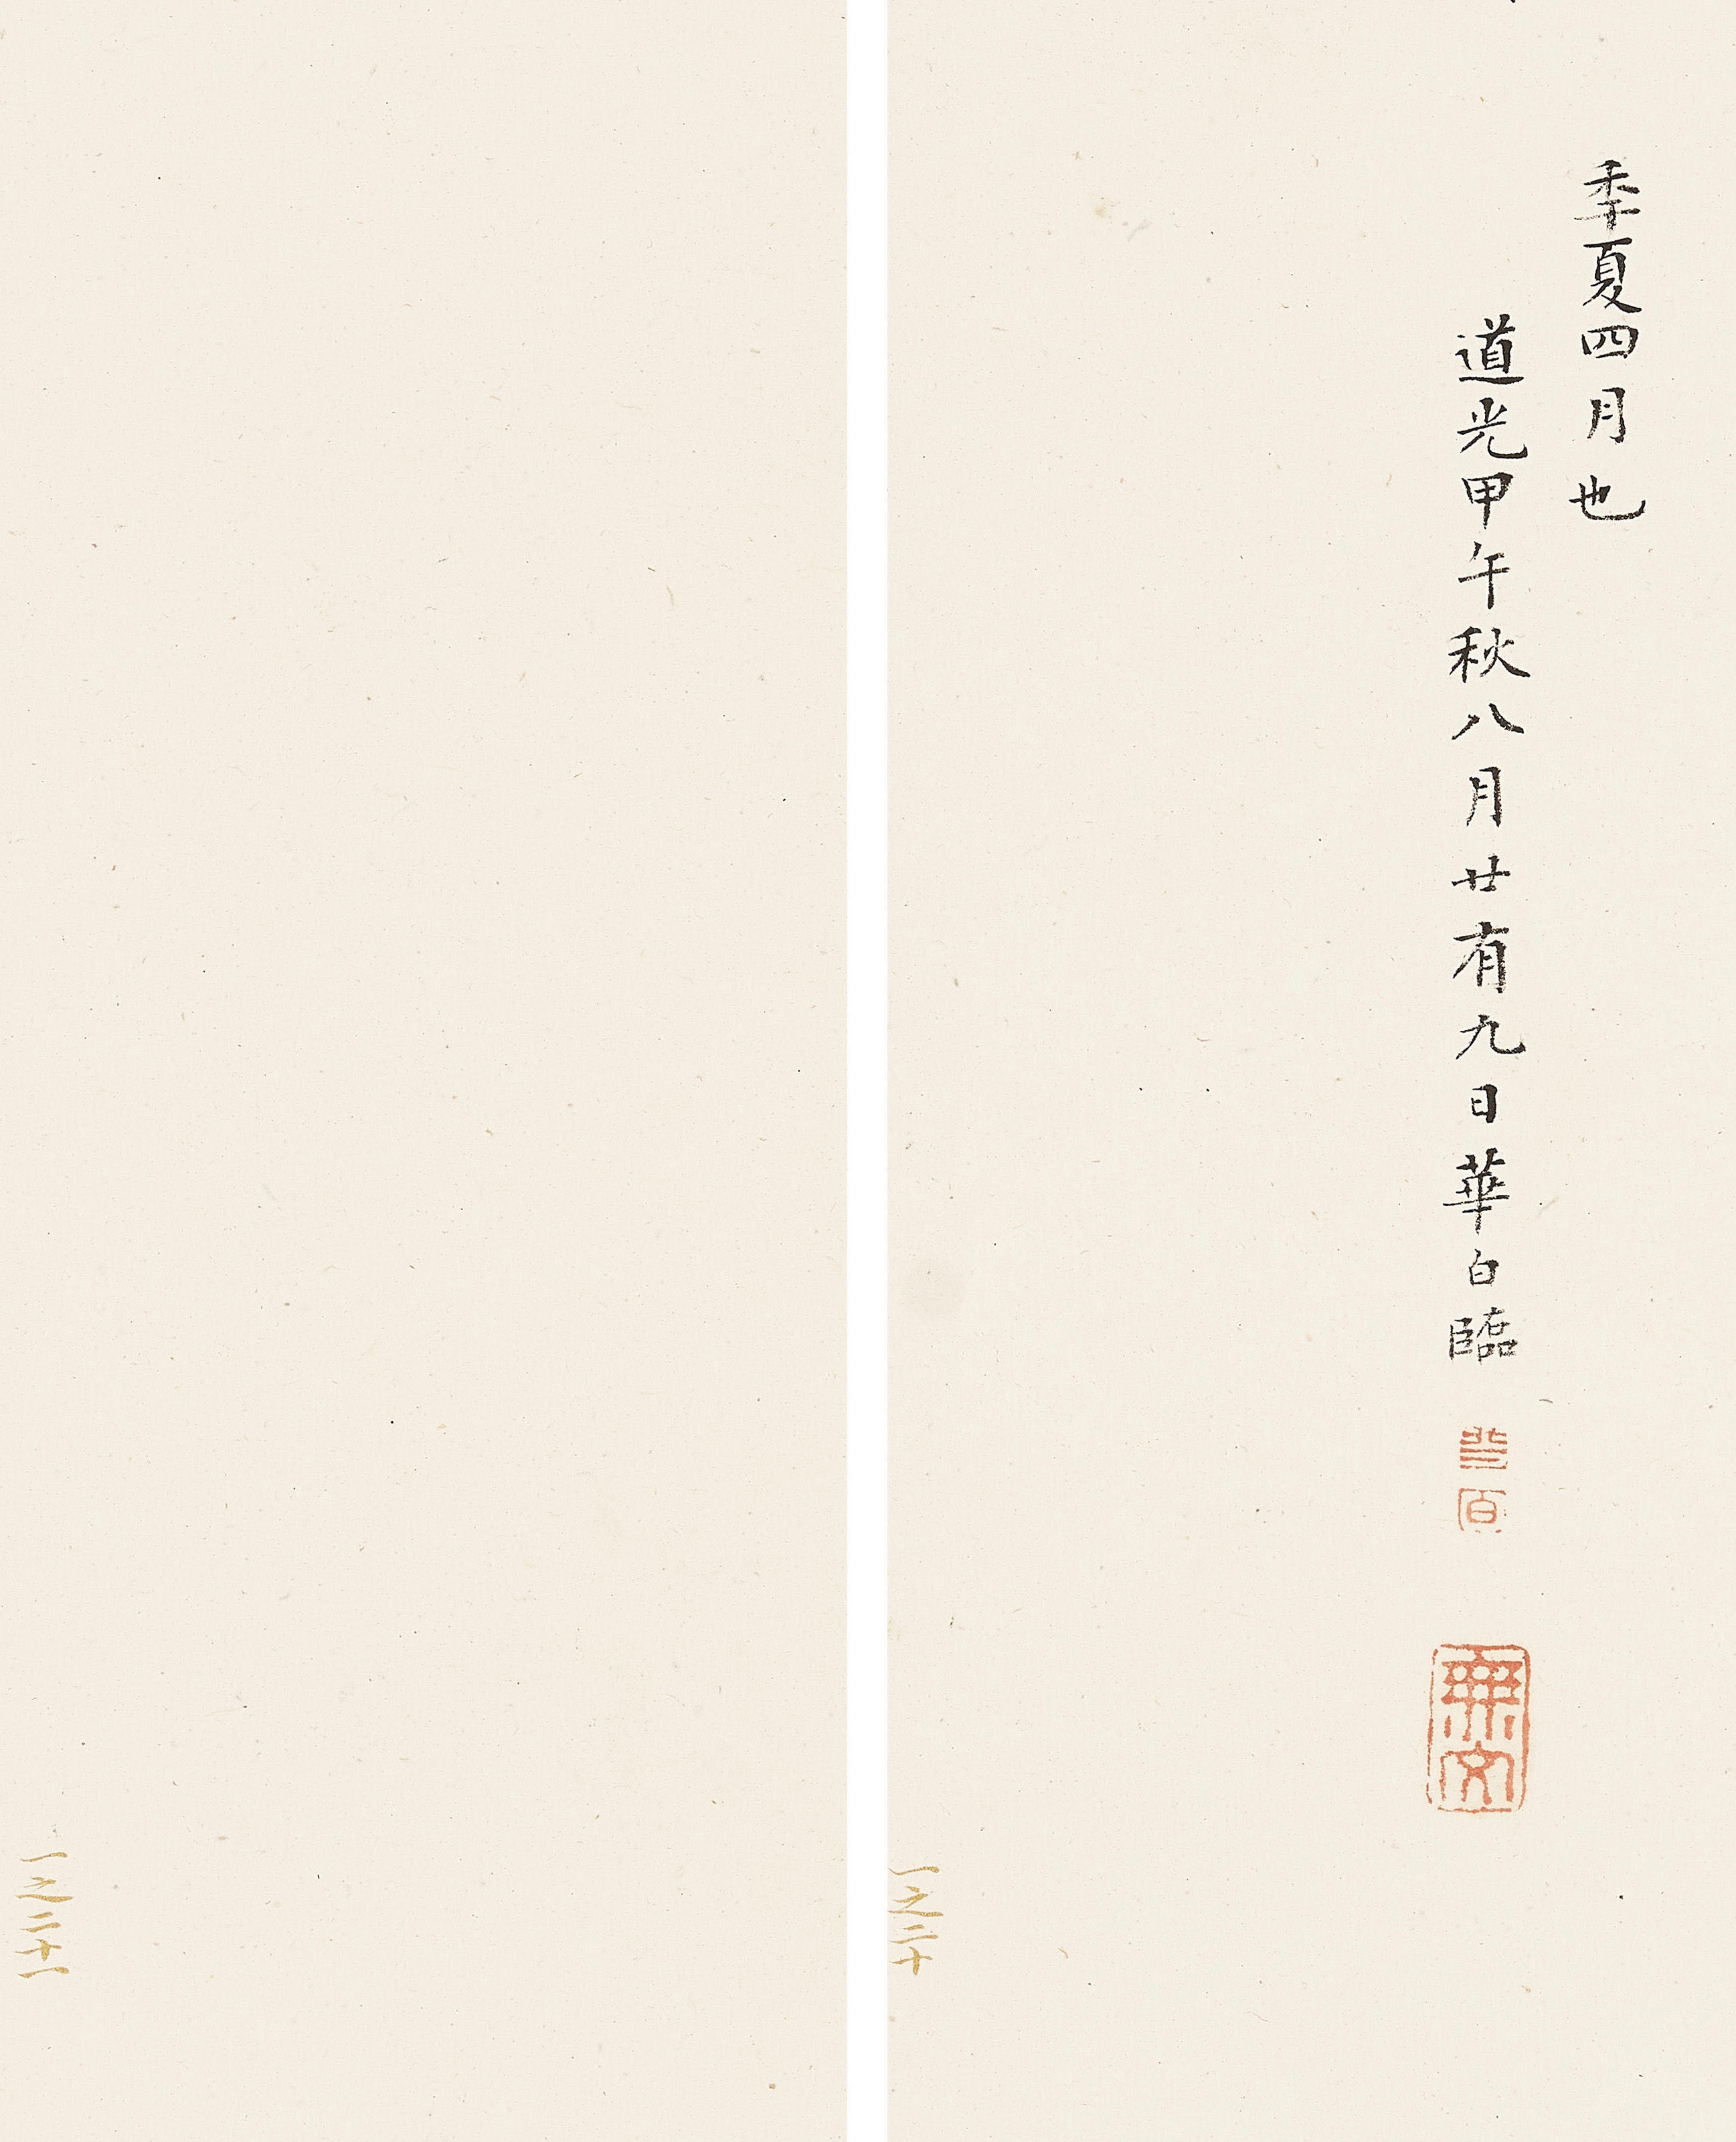 秊夏四月也
道光甲午秋八月廿有九日華白臨
一之二十
一之二十一